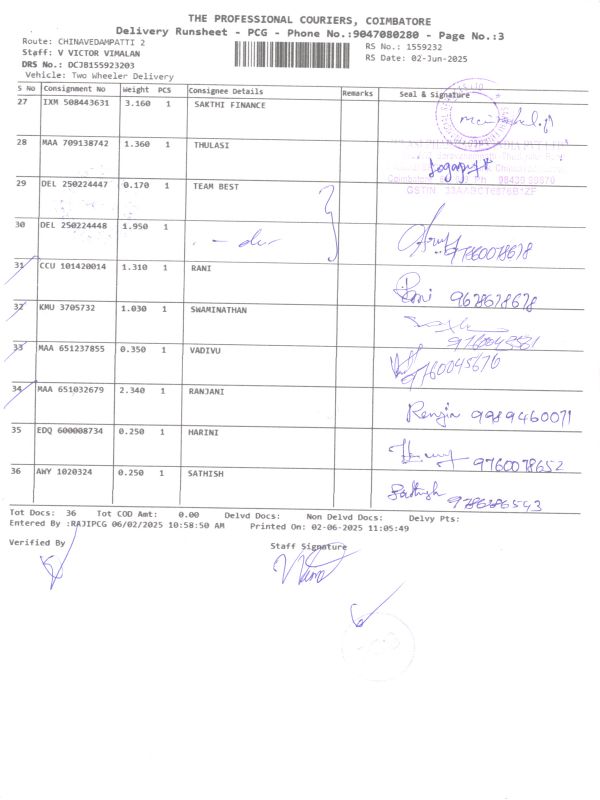 THE PROFESSIONAL COURIERS, COIMBATORE
Delivery Runsheet - PCG - Phone No.:9047080280 - Page No.:3
Route: CHINAVEDAMPATTI 2 RS No.: 1559232
Staff: V VICTOR VIMALAN RS Date: 02-Jun-2025
DRS No.: DCJB155923203
Vehicle: Two Wheeler Delivery
S No Consignment No Weight PCS Consignee Details Remarks Seal & Signature
27 IXM 508443631 3.160 1 SAKTHI FINANCE
28 MAA 709138742 1.360 1 THULASI
29 DEL 250224447 0.170 1 TEAM BEST
30 DEL 250224448 1.950 1
9760078678
31 CCU 101420014 1.310 1 RANI
Rani 9678678678
32 KMU 3705732 1.030 1 SWAMINATHAN
33 MAA 651237855 0.350 1 VADIVU
9760045676
34 MAA 651032679 2.340 1 RANJANI
9989460071
35 EDQ 600008734 0.250 1 HARINI
9760078652
36 AWY 1020324 0.250 1 SATHISH
Sathish
Tot Docs: 36 Tot COD Amt: 0.00 Delvd Docs: Non Delvd Docs: Delvy Pts:
Entered By :RAJIPCG 06/02/2025 10:58:50 AM Printed On: 02-06-2025 11:05:49
Verified By Staff Signature